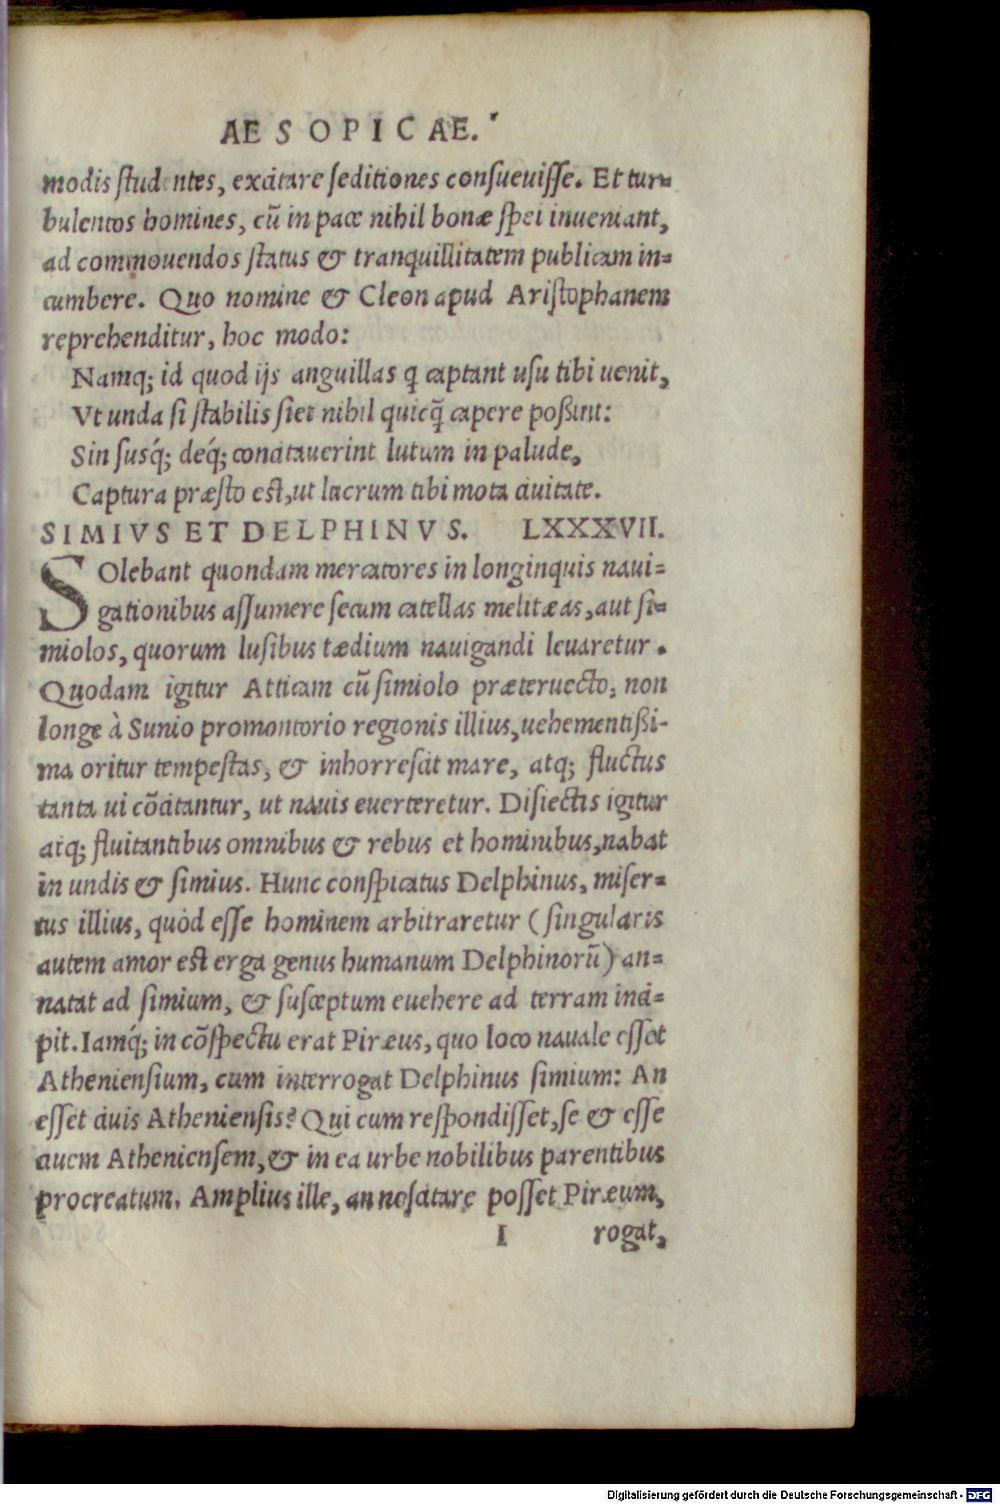 AESOPICAE.
modis studentes, excitare seditiones consueuisse. Et tur=
bulentos homines, cū in pace nihil bonæ spei inueniant,
ad commouendos status & tranquillitatem publicam in=
cumbere. Quo nomine & Cleon apud Aristophanem
reprehenditur, hoc modo:
Namq; id quod ijs anguillas q captant usu tibi uenit,
Vt unda si stabilis siet nihil quicq̃ capere poßint:
Sin susq́; deq́; concitauerint lutum in palude,
Captura præsto est, ut lucrum tibi mota ciuitate.
SIMIVS ET DELPHINVS. LXXXVII.
SOlebant quondam mercatores in longinquis naui=
gationibus assumere secum catellas melitæas, aut si=
miolos, quorum lusibus tædium nauigandi leuaretur.
Quodam igitur Atticam cū simiolo præteruecto, non
longe à Sunio promontorio regionis illius, uehementißi-
ma oritur tempestas, & inhorrescit mare, atq; fluctus
tanta ui cōcitantur, ut nauis euerteretur. Disiectis igitur
atq; fluitantibus omnibus & rebus et hominibus, nabat
in undis & simius. Hunc conspicatus Delphinus, miser=
tus illius, quòd esse hominem arbitraretur (singularis
autem amor est erga genus humanum Delphinorū) an=
natat ad simium, & susceptum euehere ad terram inci=
pit. Iamq́; in cōspectu erat Piræus, quo loco nauale esset
Atheniensium, cum interrogat Delphinus simium: An
esset ciuis Atheniensis? Qui cum respondisset, se & esse
ciuem Atheniensem, & in ea urbe nobilibus parentibus
procreatum. Amplius ille, an noscitare posset Piræum,
I rogat,
Digitalisierung gefördert durch die Deutsche Forschungsgemeinschaft - DFG